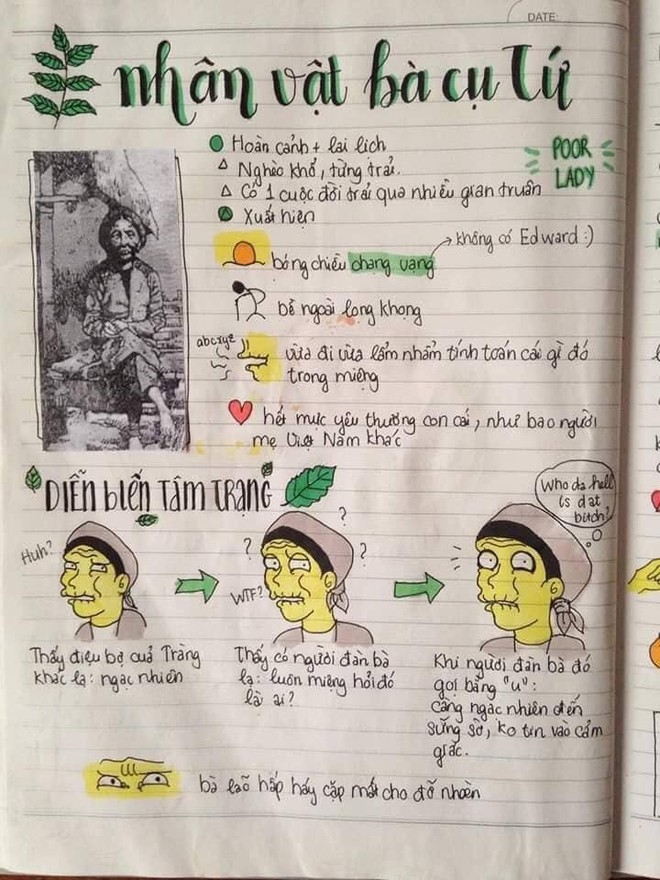 DATE:
nhân vật bà cụ Tứ
Hoàn cảnh + lai lịch
Nghèo khổ, từng trải.
Có 1 cuộc đời trải qua nhiều gian truân
POOR
LADY
Xuất hiện
không có Edward :)
bóng chiều chạng vạng
bề ngoài lọng khọng
abcxyz
vừa đi vừa lẩm nhẩm tính toán cái gì đó
trong miệng
hết mực yêu thương con cái, như bao người
mẹ Việt Nam khác
DIỄN biến TÂM TRẠNG
Who da hell
is dat
bitch?
Huh?
?
?
?
WTF?
Thấy điệu bộ của Tràng
khác lạ: ngạc nhiên
Thấy có người đàn bà
lạ: luôn miệng hỏi đó
là ai?
Khi người đàn bà đó
gọi bằng "u":
càng ngạc nhiên đến
sững sờ, ko tin vào cảm
giác.
bà lão hấp háy cặp mắt cho đỡ nhoèn